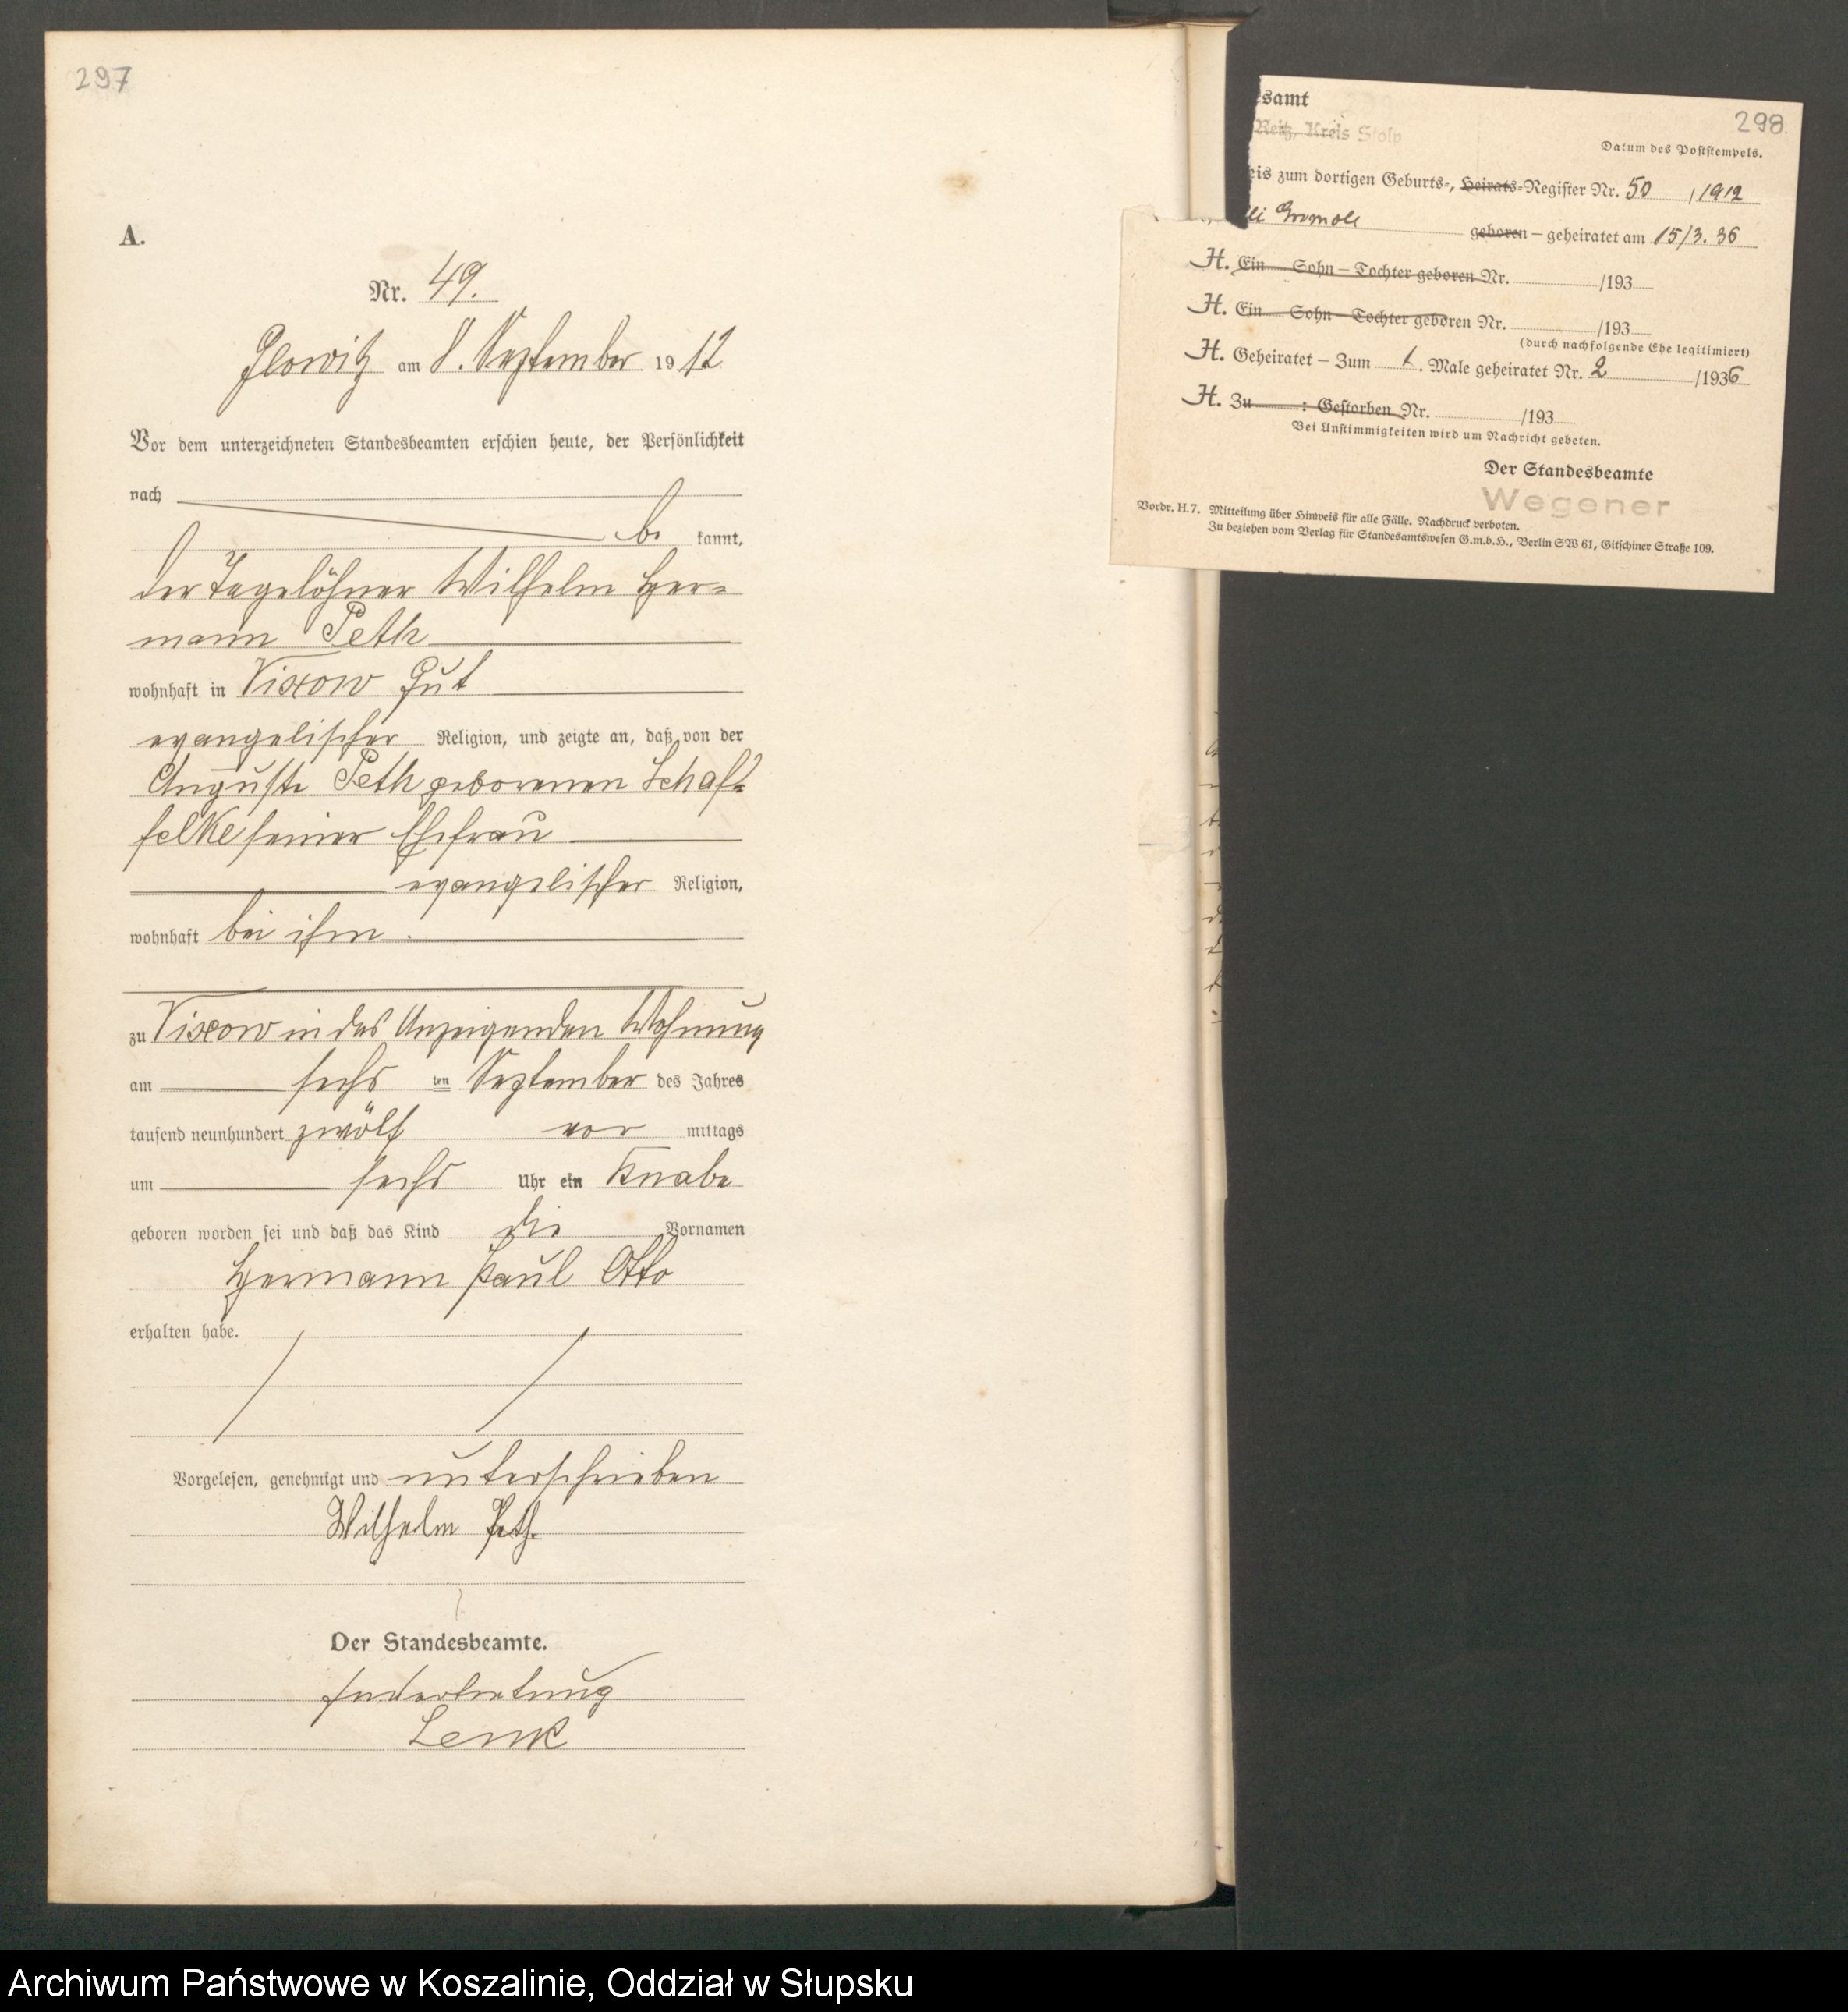 297
A.
Nr. 49.
Glowitz am 8. September 1912
Vor dem unterzeichneten Standesbeamten erschien heute, der Persönlichkeit
nach
be kannt,
der Tagelöhner Wilhelm Her=
mann Peth
wohnhaft in Vixow Gut
evangelischer Religion, und zeigte an, daß von der
Auguste Peth geborenen Schaf=
felke seiner Ehefrau
evangelischer Religion,
wohnhaft bei ihm
zu Vixow in des Anzeigenden Wohnung
am sechs ten September des Jahres
tausend neunhundert zwölf vor mittags
um sechs Uhr ein Knabe
geboren worden sei und daß das Kind die Vornamen
Hermann Paul Otto
erhalten habe.
Vorgelesen, genehmigt und unterschrieben
Wilhelm Peth.
Der Standesbeamte.
Lenk
298.
esamt
Reitz, Kreis Stolp
Datum des Poststempels.
eis zum dortigen Geburts-, Heirats-Register Nr. 50 / 1912
geboren – geheiratet am 15/3. 36
H. Ein Sohn – Tochter geboren Nr. /193
H. Ein Sohn – Tochter geboren Nr. /193
(durch nachfolgende Ehe legitimiert)
H. Geheiratet – Zum 1. Male geheiratet Nr. 2 /1936
H. Zu : Gestorben Nr. /193
Bei Unstimmigkeiten wird um Nachricht gebeten.
Der Standesbeamte
Wegener
Vordr. H. 7. Mitteilung über Hinweis für alle Fälle. Nachdruck verboten.
Zu beziehen vom Verlag für Standesamtswesen G.m.b.H., Berlin SW 61, Gitschiner Straße 109.
Archiwum Państwowe w Koszalinie, Oddział w Słupsku